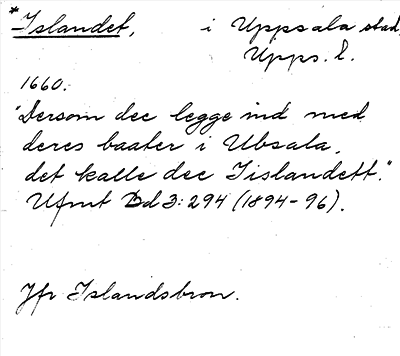 *Islandet, i Uppsala stad,
Upps. l.
1660.
"Dersom dee legge ind med
deres baater i Ubsala,
det kalle dee Iislandett."
Ufmt Bd 3: 294 (1894-96).
Jfr Islandsbron.